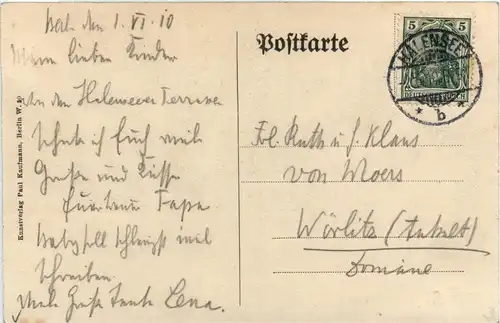 Berl. den 1. VI. 10
Meine lieben Kinder
Von den Halenseeer Terrassen
schicke ich Euch viele
Grüße und Küsse
Euer treuer Papa.
Baby soll schleunigst mal
schreiben.
Viele Grüße Tante Lena.
Kunstverlag Paul Kaufmann, Berlin W. 30
Postkarte
5 5
DEUTSCHES REICH
HALENSEE
* b *
Frl. Ruth u. H. Klaus
von Moers
Wörlitz (Anhalt)
Domäne